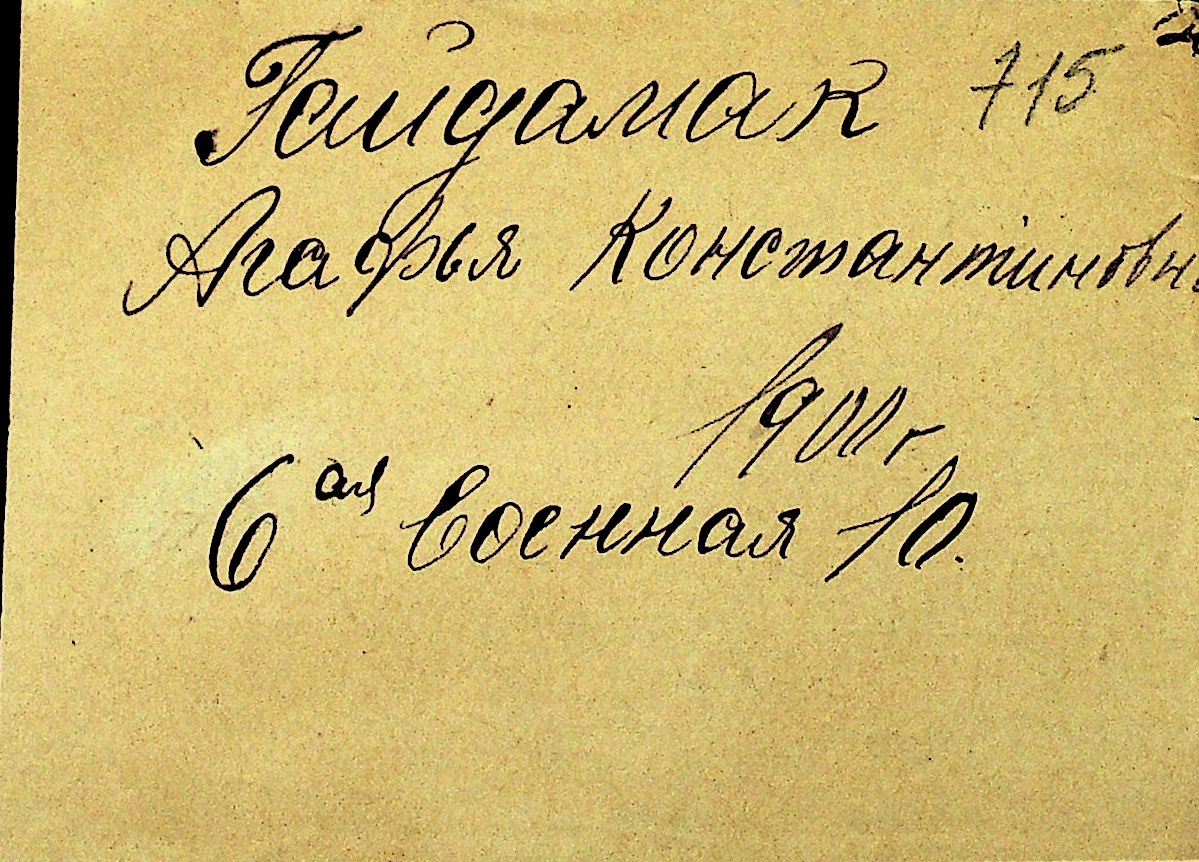 Гайдамак 715
Агафья Константиновн
1900г
6ая Военная 10.